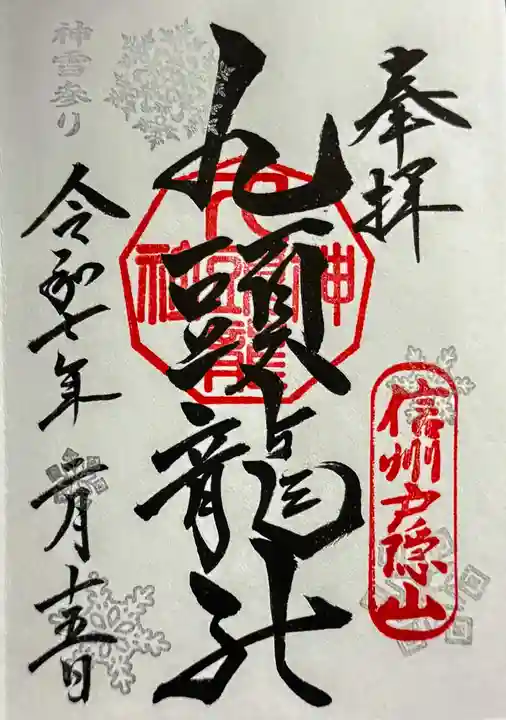 奉拝
信州戸隠山
九頭龍社
九頭龍神社
神雪参り
令和七年
二月
十五日